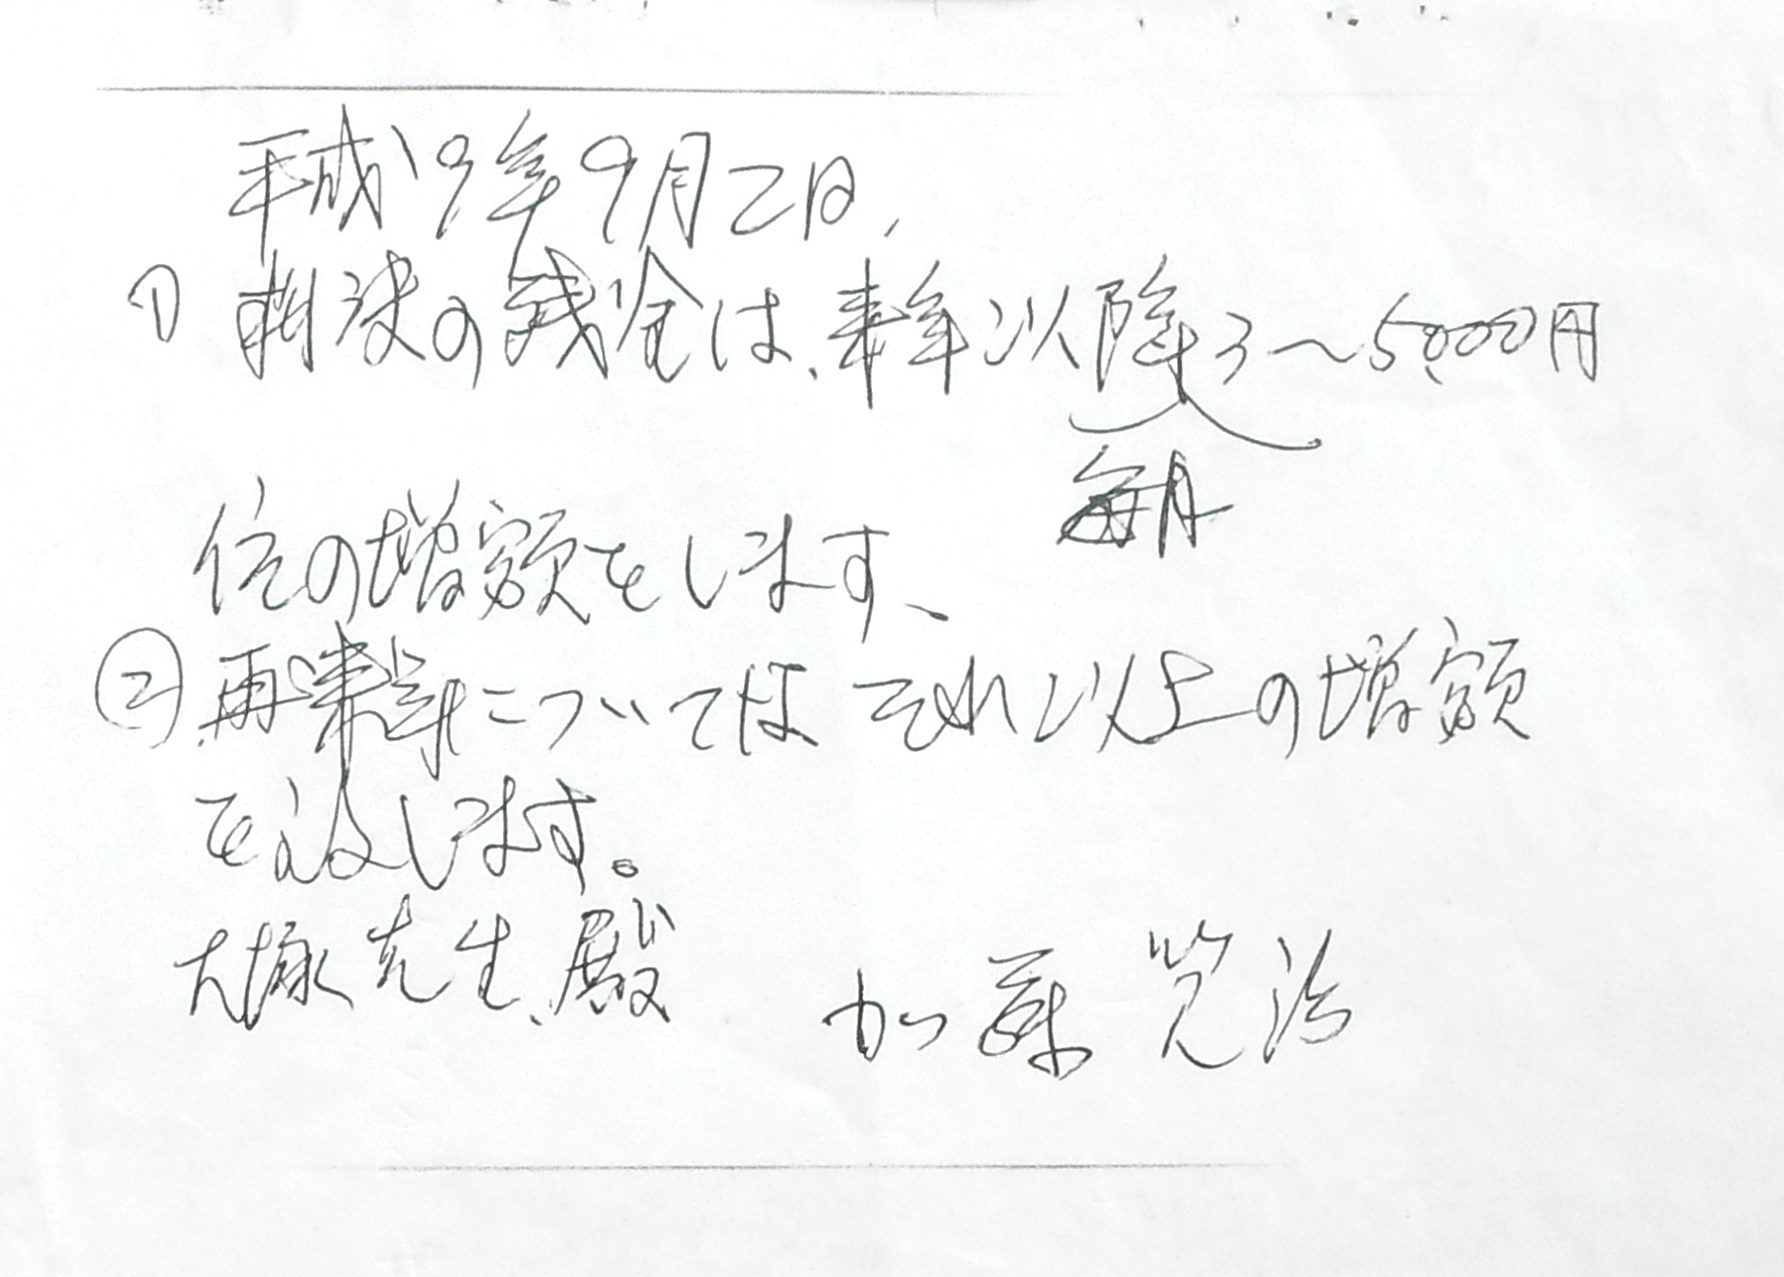 平成19年9月2日、
① 判決の残金は、来年以降3〜5,000円
毎月
位の増額をします、
② 再来年については それ以上の増額
を致します。
大塚先生、殿 加藤 寛治